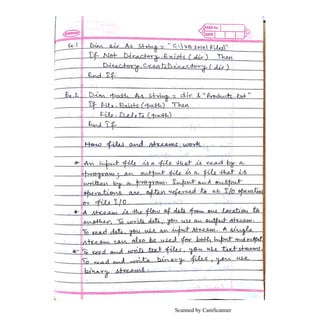 Ex.1 Dim dir As String = "C:\VB 2010\Files\"
If Not Directory.Exists (dir) Then
Directory.CreateDirectory (dir)
End If
Ex.2 Dim path As String = dir & "Products.txt"
If File.Exists (path) Then
File.Delete (path)
End If
How files and streams work
* An input file is a file that is read by a
program; an output file is a file that is
written by a program. Input and output
operations are often referred to as I/O operations
or file I/O
* A stream is the flow of data from one location to
another. To write data, you use an output stream.
To read data, you use an input stream. A single
stream can also be used for both input and output
* To read and write text files, you use text streams.
To read and write binary files, you use
binary streams.
Scanned by CamScanner